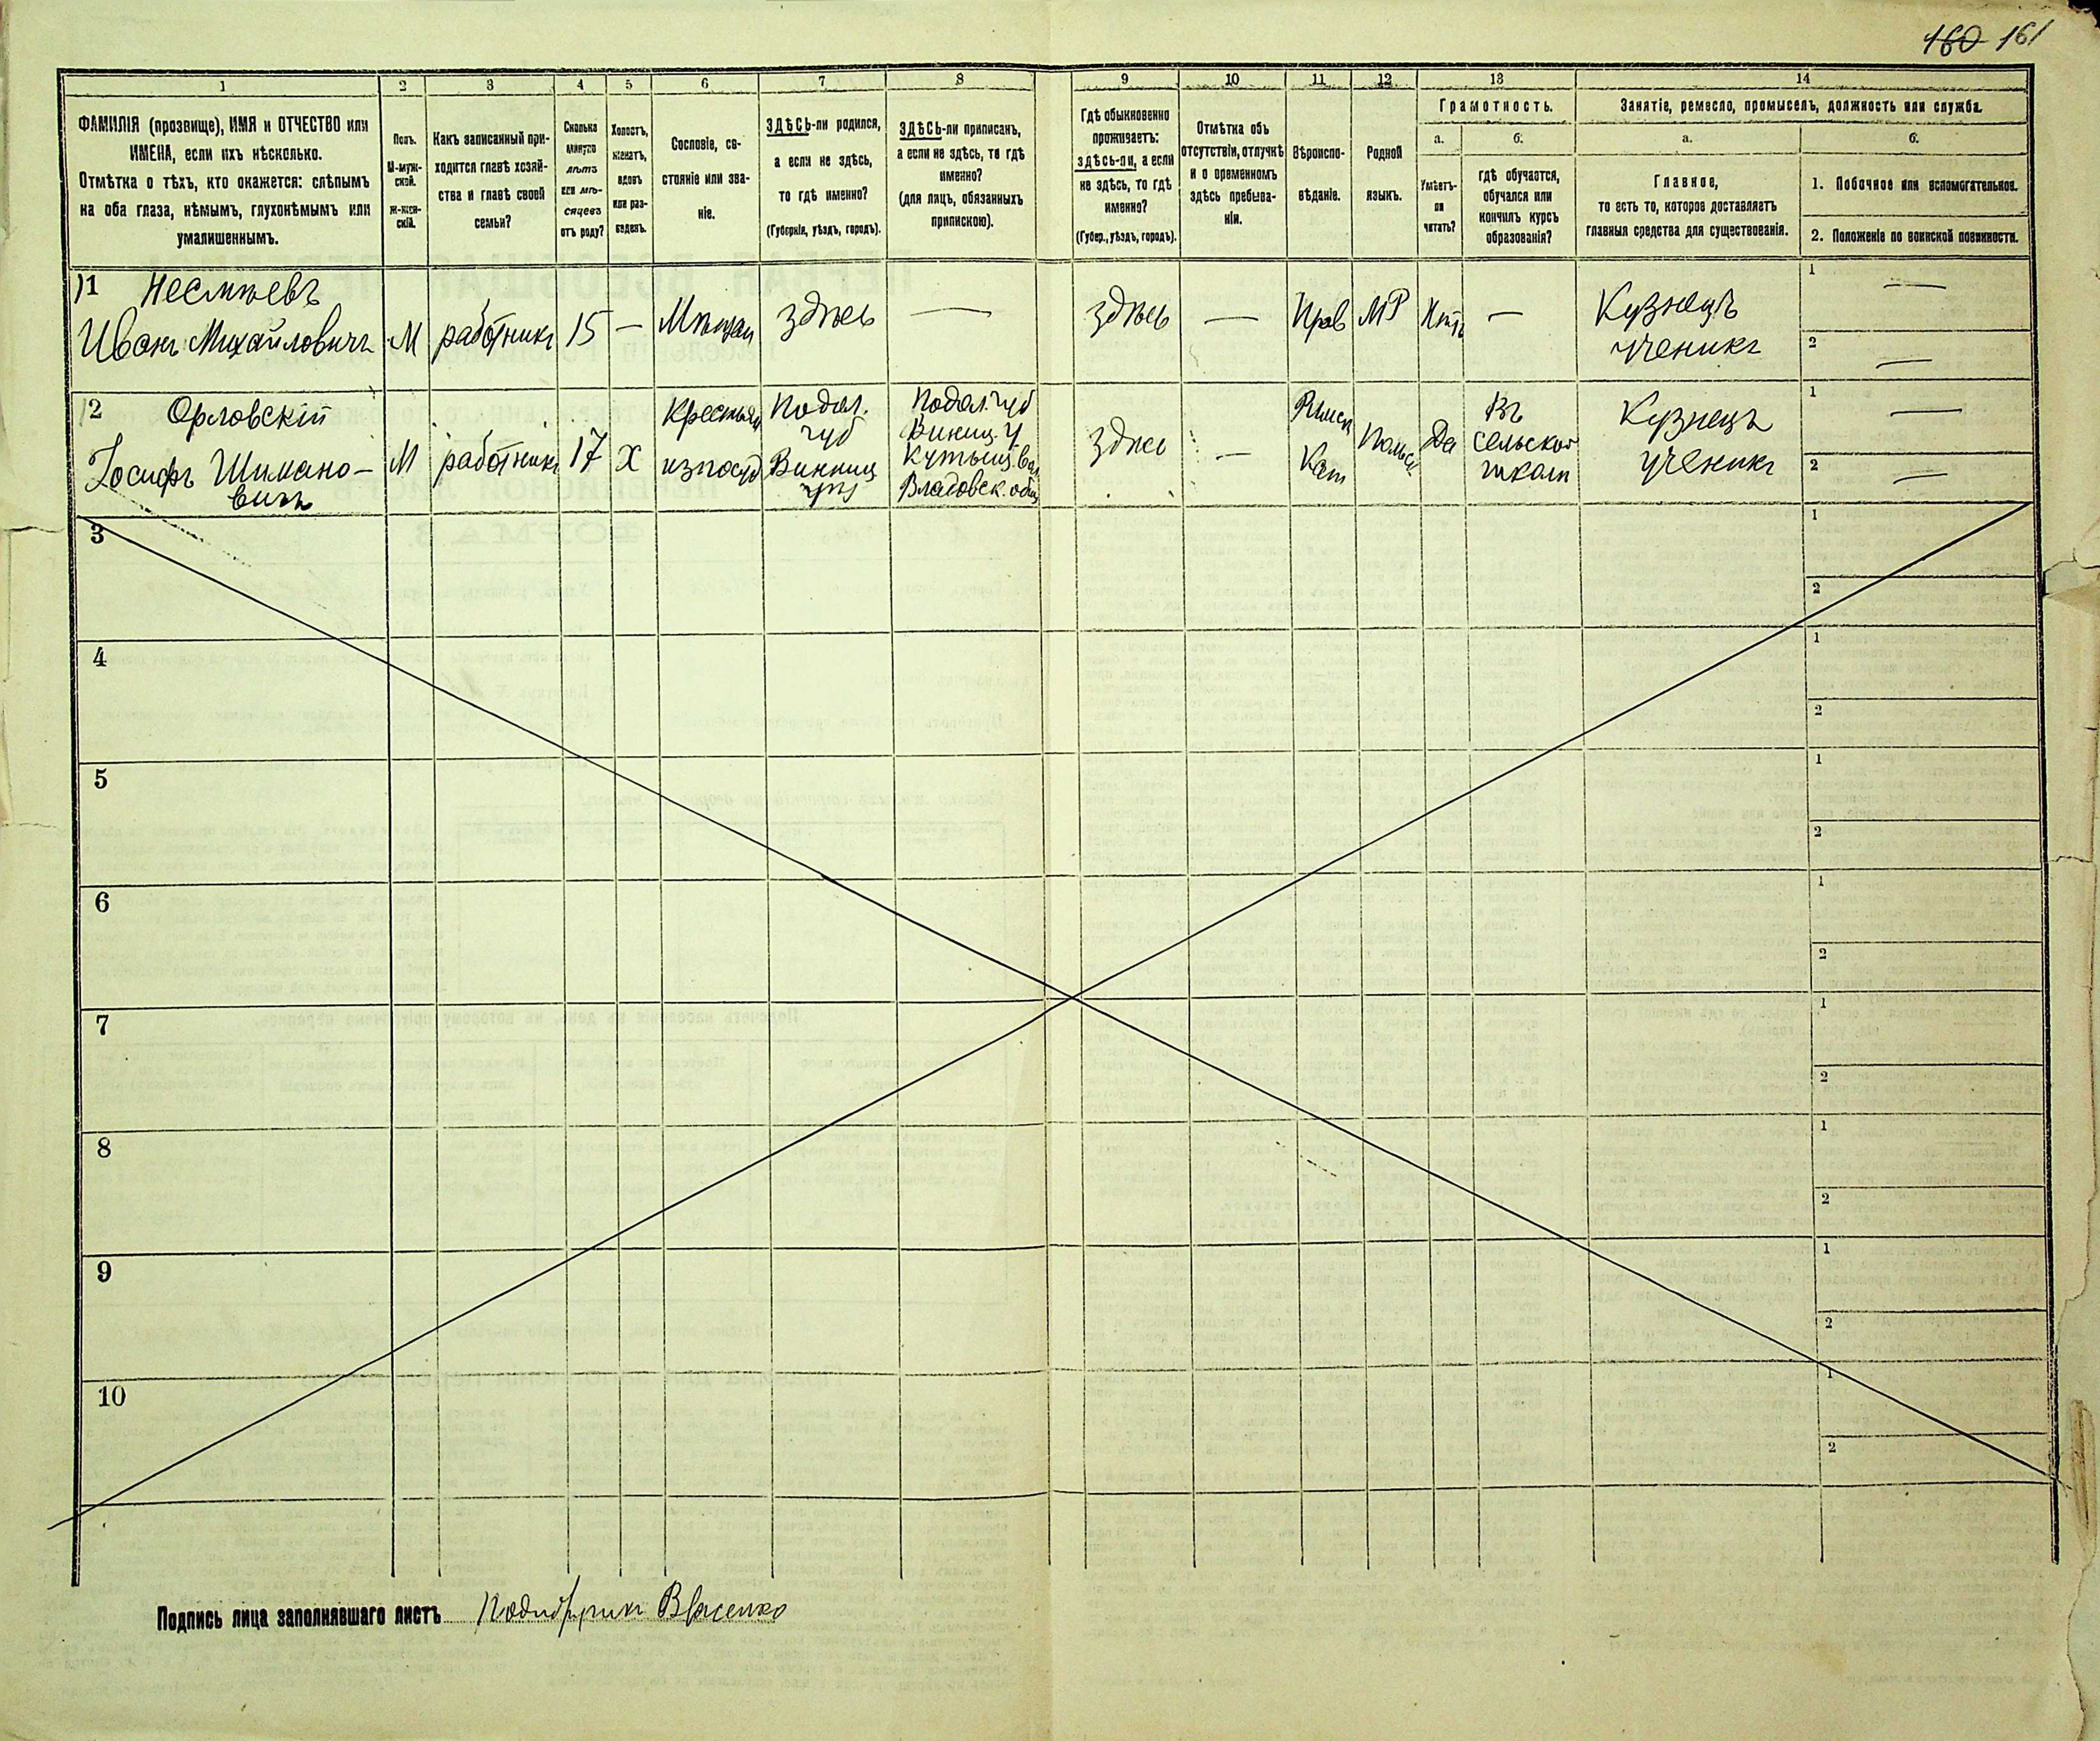 160 161
1 2 3 4 5 6 7 8 9 10 11 12 13 14
ФАМИЛІЯ (прозвище), ИМЯ и ОТЧЕСТВО или
ИМЕНА, если ихъ нѣсколько.
Отмѣтка о тѣхъ, кто окажется: слѣпымъ
на оба глаза, нѣмымъ, глухонѣмымъ или
умалишеннымъ.
Полъ.
М-муж-
ской.
Ж-жен-
скій.
Какъ записанный при-
ходится главѣ хозяй-
ства и главѣ своей
семьи?
Сколько
минуло
лѣтъ
или мѣ-
сяцевъ
отъ роду?
Холостъ,
женатъ,
вдовъ
или раз-
веденъ.
Сословіе, со-
стояніе или зва-
ніе.
ЗДѢСЬ-ли родился,
а если не здѣсь,
то гдѣ именно?
(Губернія, уѣздъ, городъ).
ЗДѢСЬ-ли приписанъ,
а если не здѣсь, то гдѣ
именно?
(для лицъ, обязанныхъ
припискою).
Гдѣ обыкновенно
проживаетъ:
здѣсь-ли, а если
не здѣсь, то гдѣ
именно?
(Губер., уѣздъ, городъ).
Отмѣтка объ
отсутствіи, отлучкѣ
и о временномъ
здѣсь пребыва-
ніи.
Вѣроиспо-
вѣданіе.
Родной
языкъ.
Грамотность.
а.
Умѣетъ-
ли
читать?
б.
гдѣ обучается,
обучался или
кончилъ курсъ
образованія?
Занятіе, ремесло, промыселъ, должность или служба.
а.
Главное,
то есть то, которое доставляетъ
главныя средства для существованія.
б.
1. Побочное или вспомогательное.
2. Положеніе по воинской повинности.
11
Иванъ Михайловичъ
М
работникъ
15
—
здѣсь
—
здѣсь
—
Прав
МР
—
Кузнецъ
ученикъ
1 —
2 —
12 Орловскій
Іосифъ Шимано-
вичъ
М
работникъ
17
Х
Крестьян
Подол.
губ
Винниц
Подол. губ
Винниц. у
здѣсь
—
Римск
Кат
Польск
Да
Въ
сельской
школѣ
Кузнецъ
ученикъ
1 —
2 —
3
1
2
4
1
2
5
1
2
6
1
2
7
1
2
8
1
2
9
1
2
10
1
2
Подпись лица заполнявшаго листъ Власенко